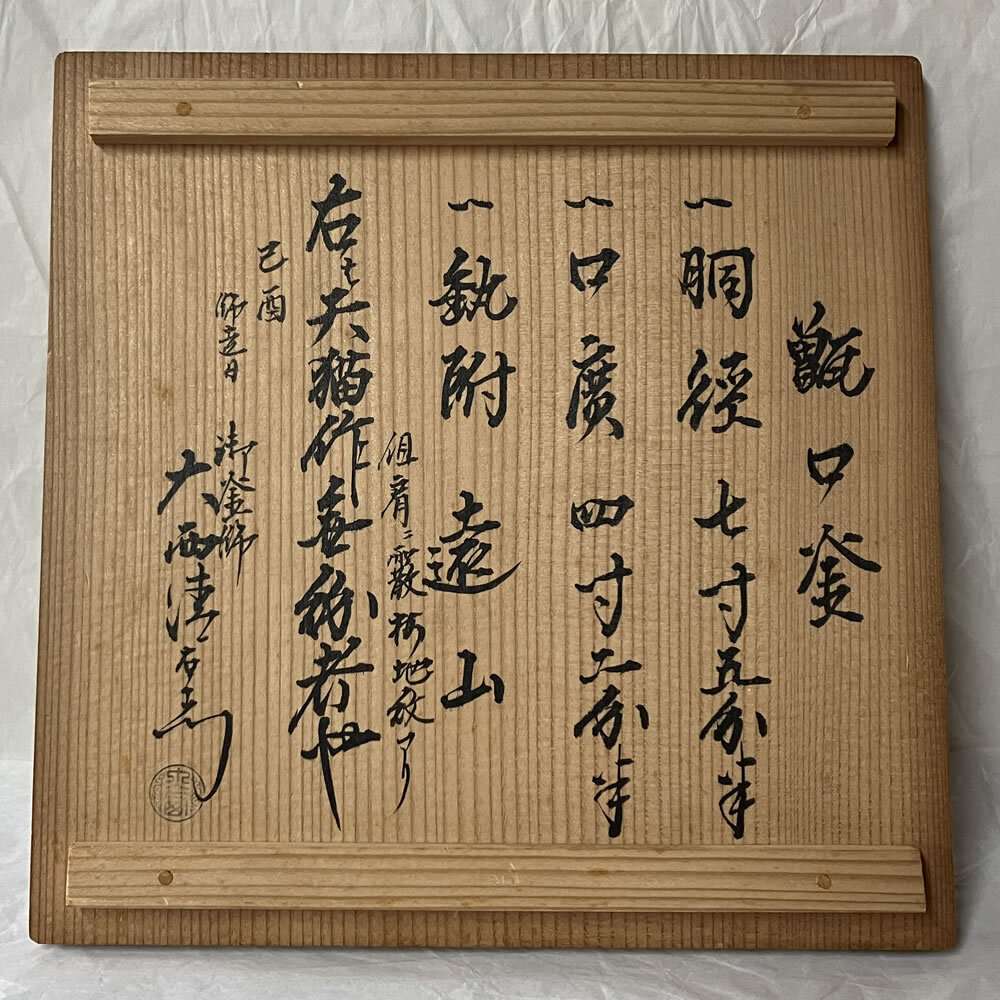 甑口釜
一 胴径 七寸五分半
一 口廣 四寸二分半
一 鈂附 遠山
但肩ニ霰 地紋アリ
右ハ天猫作無紛者也
己酉
師走日
御釜師
大西清右衛門